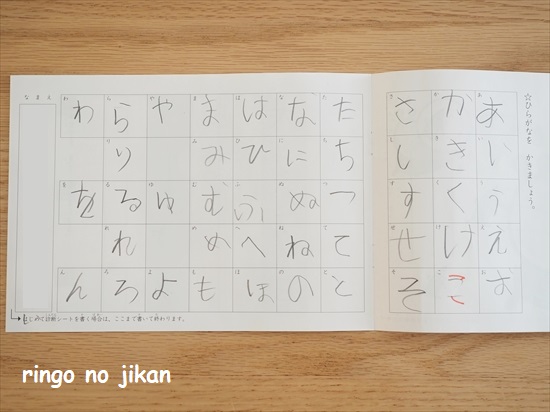 ☆ひらがなを かきましょう。
あいうえお
かきくけこ
さしすせそ
たちつてと
なにぬねの
はひふへほ
まみむめも
やゆよ
らりるれろ
わをん
なまえ
はじめて診断シートを書く場合は、ここまで書いて終わります。
ringo no jikan